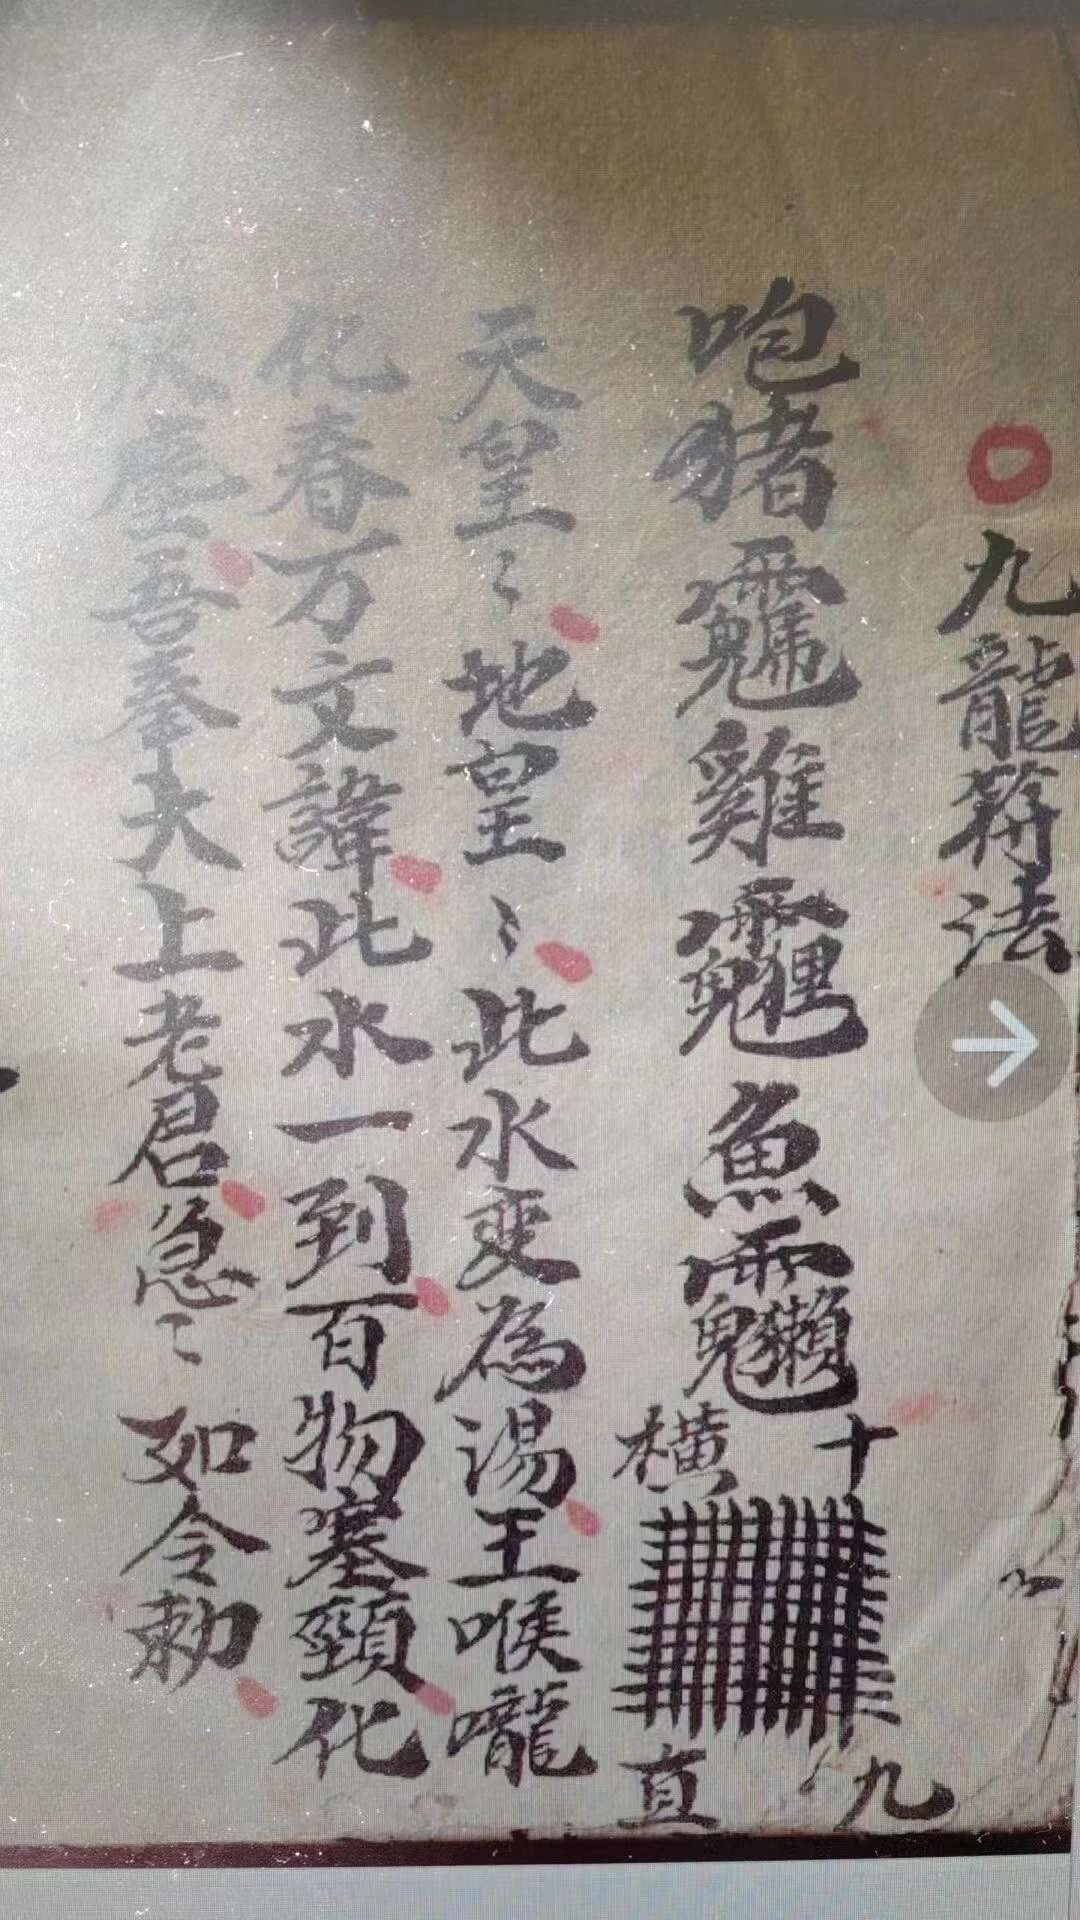 九龍符法
咆猪雞魚
十
橫
九
直
天皇〻地皇〻此水变為湯王喉嚨
化春万文諱此水一到百物塞頸化
灰塵吾奉太上老君急〻如令勅